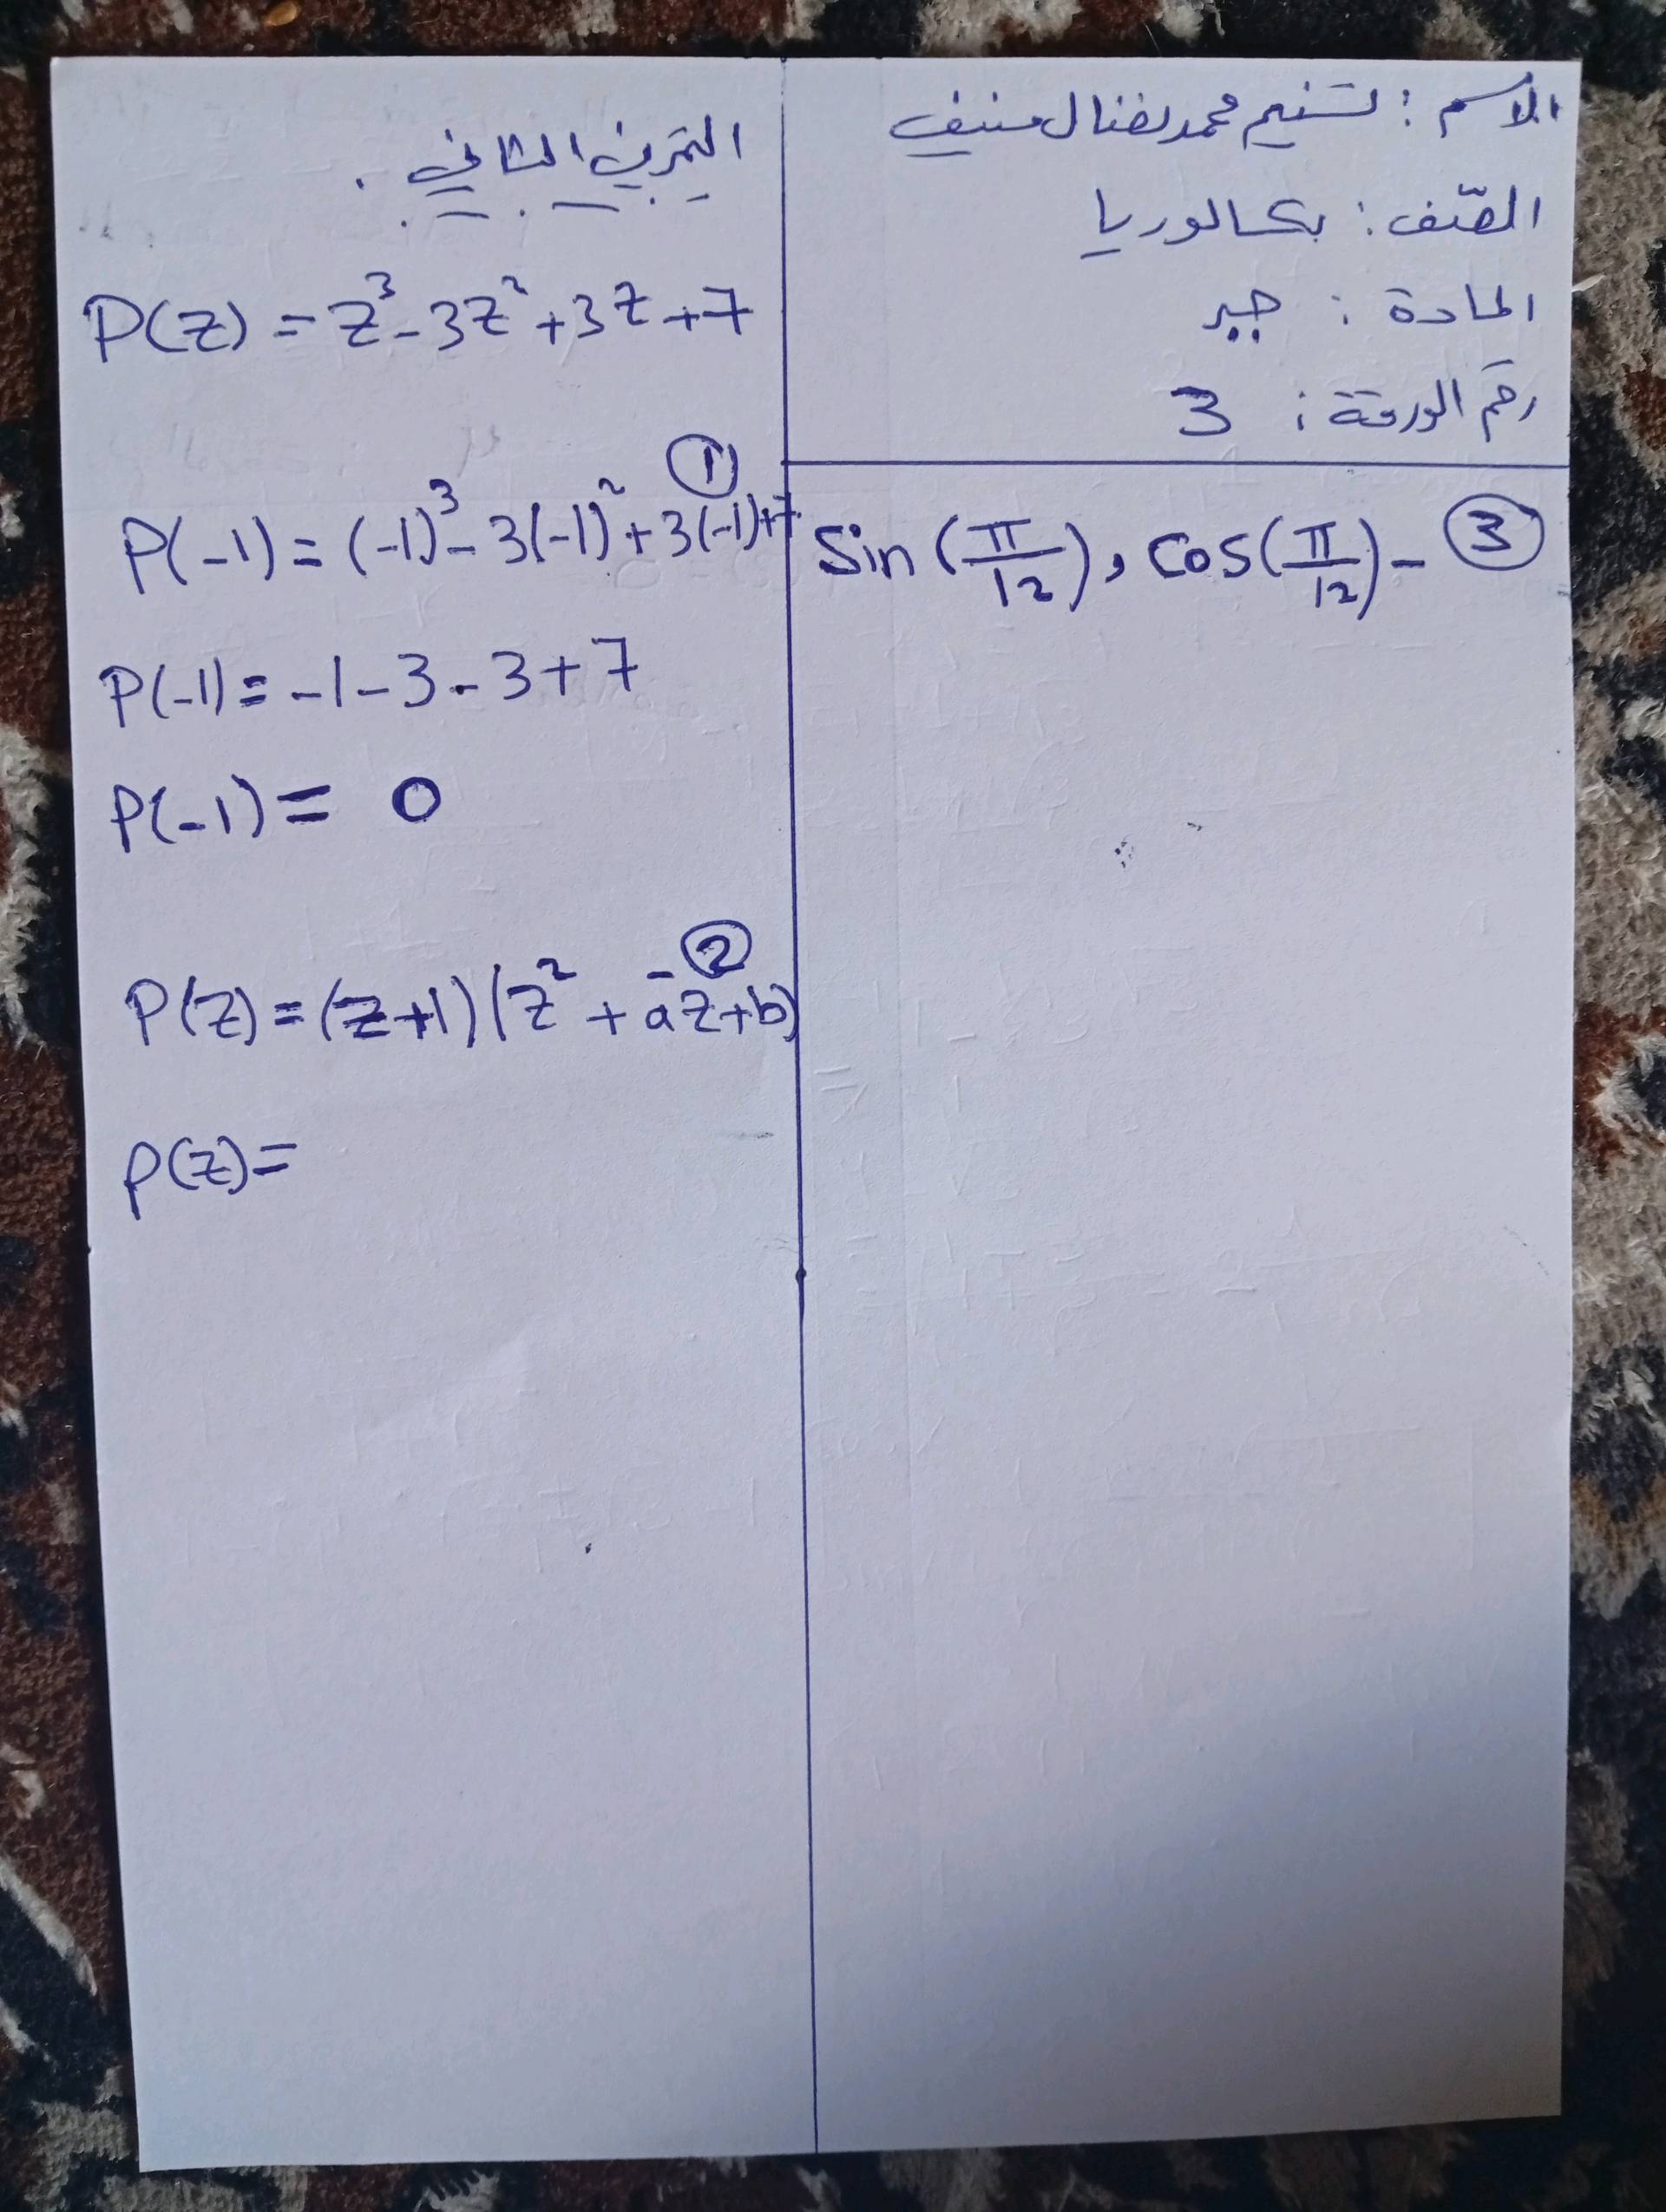 الاسم : تسنيم محمد نضال منيف
الصّف : بكالوريا
المادة : جبر
رقم الورقة : 3
③ - cos(π/12) , Sin(π/12)
التمرين الثاني .
P(z) = z³ - 3z² + 3z + 7
①
P(-1) = (-1)³ - 3(-1)² + 3(-1) + 7
P(-1) = -1 - 3 - 3 + 7
P(-1) = 0
- ②
P(z) = (z+1)(z² + az + b)
P(z) =